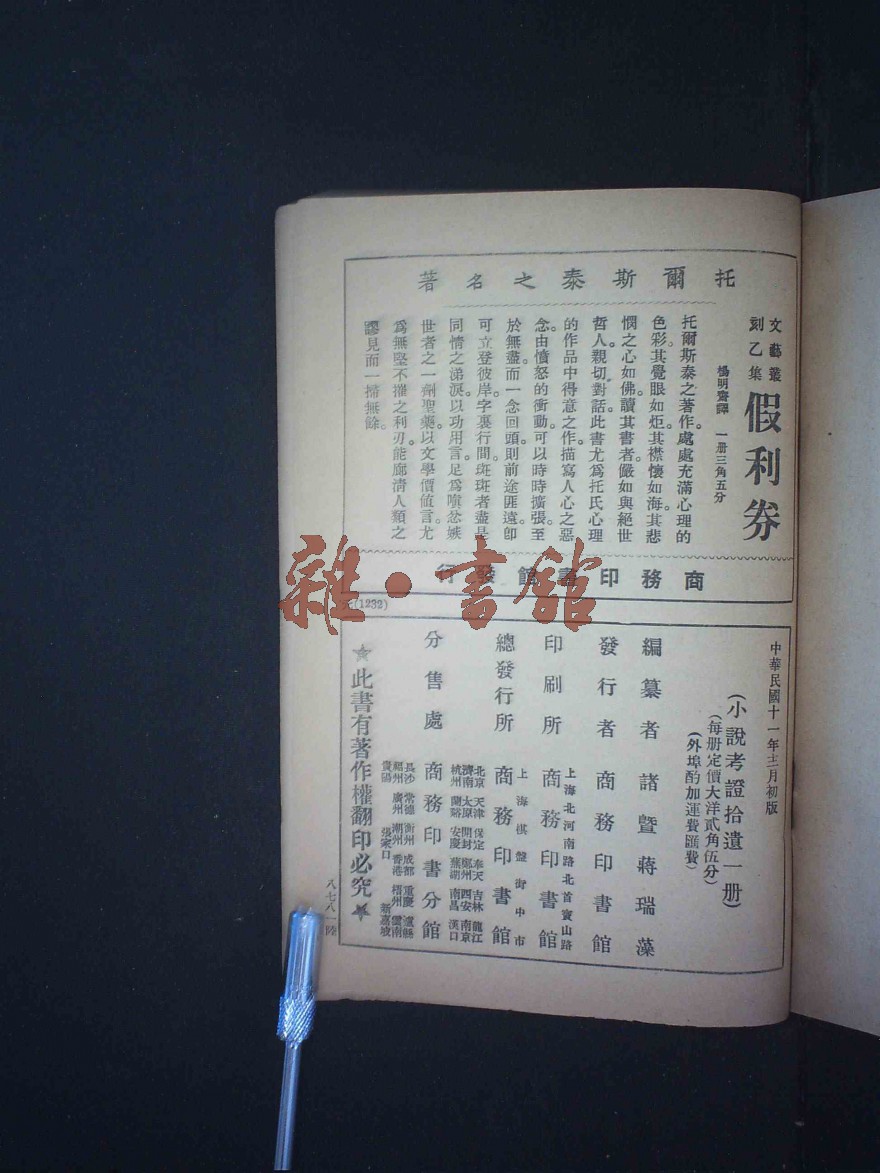 托爾斯泰之名著
文藝叢
刻乙集
假利券
楊明齋譯 一册三角五分
托爾斯泰之著作。處處充滿心理的
色彩。其覺眼如炬。其襟懷如海。其悲
憫之心如佛。讀其書者。儼如與絕世
哲人。親切對話。此書尤爲托氏心理
的作品中得意之作。描寫人心之惡
念。由憤怒的衝動。可以時時擴張。至
於無盡。而一念回頭。則前途匪遠。卽
可立登彼岸。字裏行間。斑斑者盡是
同情之涕淚。以功用言。足爲嗔忿嫉
世者之一劑聖藥。以文學價值言。尤
爲無堅不摧之利刃。能廊淸人類之
謬見而一掃無餘。
商務印書館發行
元(1232)
中華民國十一年十二月初版
(小說考證拾遺一册)
(每册定價大洋貳角伍分)
(外埠酌加運費匯費)
編纂者 諸暨蔣瑞藻
發行者 商務印書館
印刷所 上海北河南路北首寶山路 商務印書館
總發行所 上海棋盤街中市 商務印書館
分售處 商務印書分館
北京 天津 保定 奉天 吉林 龍江
濟南 太原 開封 鄭州 西安 南京
杭州 蘭谿 安慶 蕪湖 南昌 漢口
長沙 常德 衡州 成都 重慶 瀘縣
福州 廣州 潮州 香港 梧州 雲南
貴陽 張家口 新嘉坡
★此書有著作權翻印必究★
八七八一陸
雜·書館